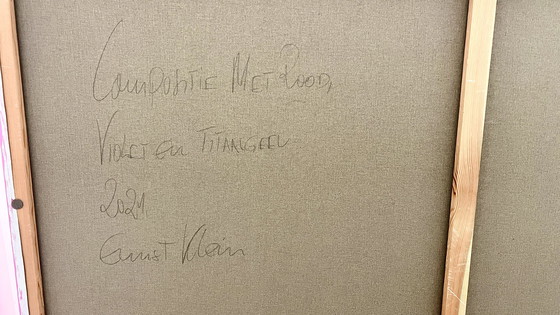 Compositie Met Rood,
Violet en Titangeel
2021
Ernst Klein